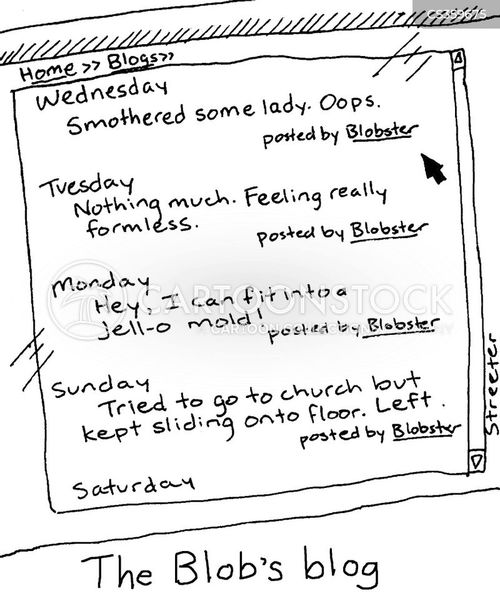 CS359675
Home >> Blogs>>
Wednesday
Smothered some lady. Oops.
posted by Blobster
Tuesday
Nothing much. Feeling really
formless.
posted by Blobster
Monday
Hey, I can fit into a
jell-o mold!
posted by Blobster
CARTOONSTOCK
Sunday
Tried to go to church but
kept sliding onto floor. Left.
posted by Blobster
Saturday
Streeter
The Blob's blog